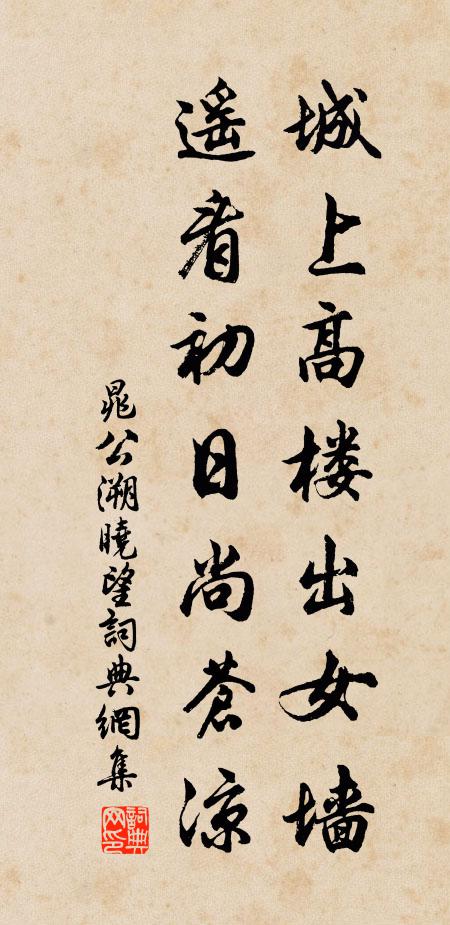 城上高楼出女墙
遥看初日尚苍凉
晁公溯曉望詞典網集
詞典网印